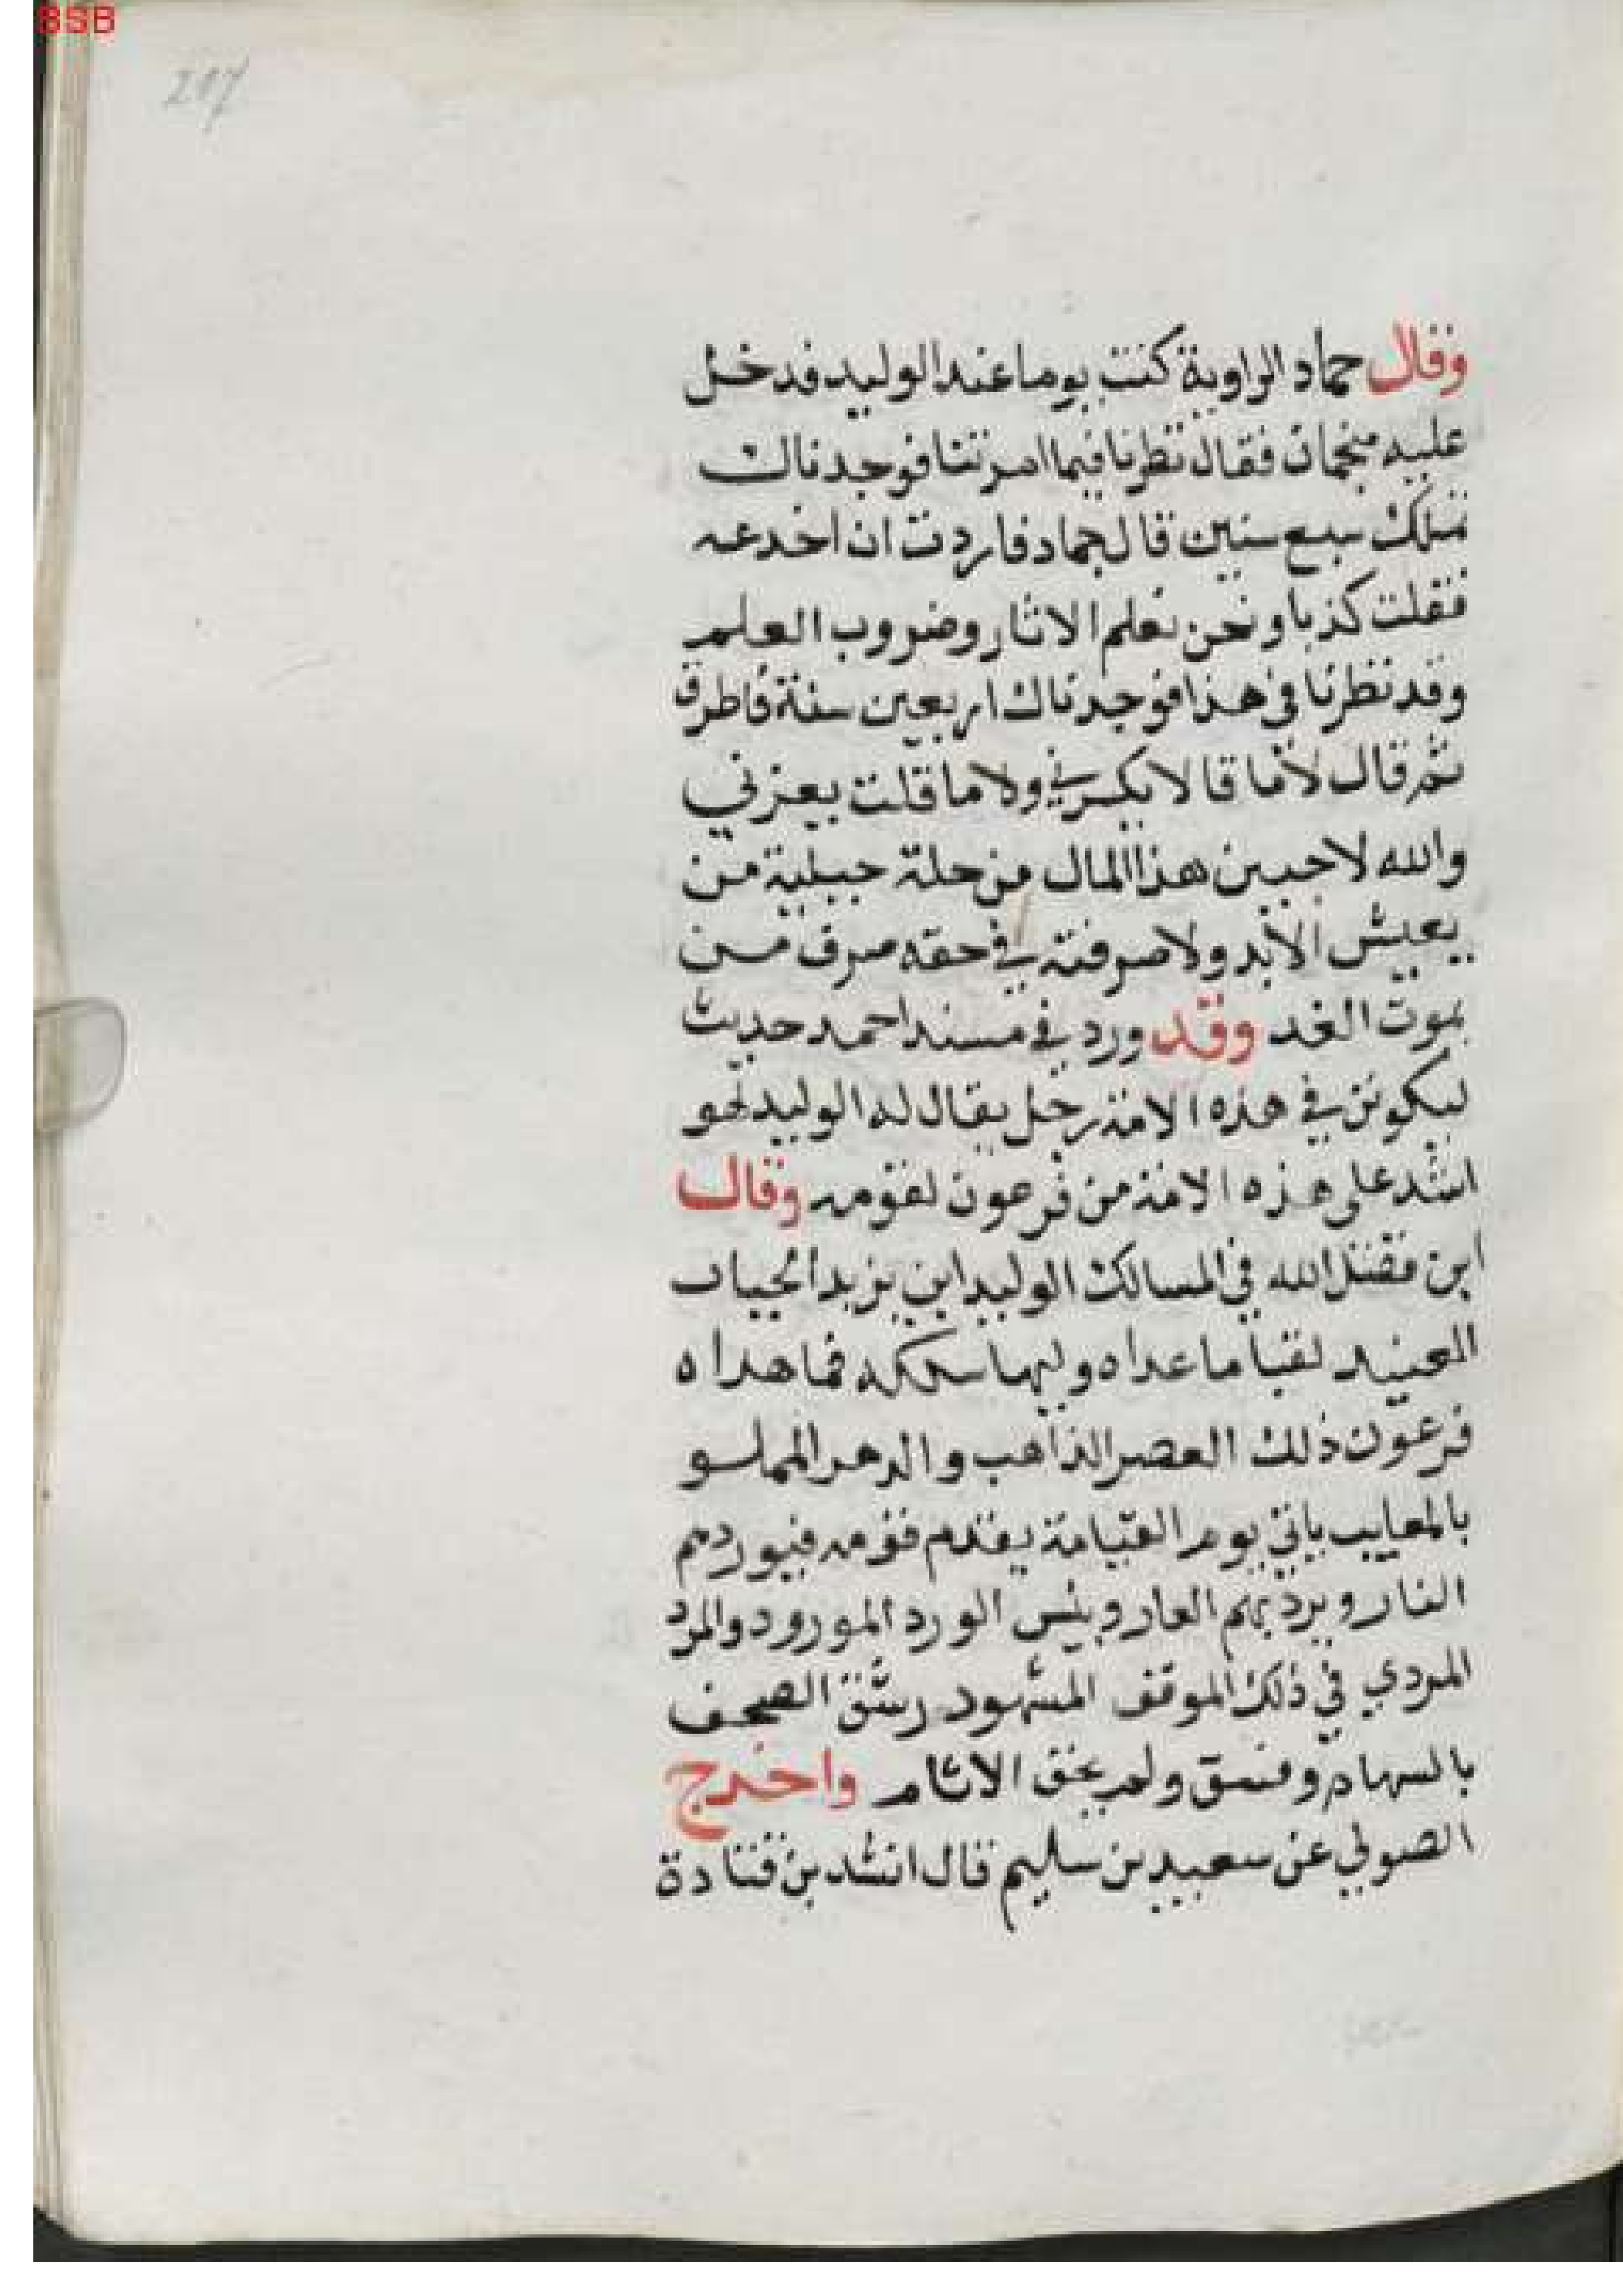 BSB
217
وقال حماد الراوية كنت يوما عند الوليد فدخل
عليه منجمان فقال نظرنا فيما امرتنا فوجدناك
تملك سبع سنين قال حماد فاردت ان اخدعه
فقلت كذبا ونحن نعلم الاثار وضروب العلم
وقد نظرنا في هذا فوجدناك اربعين سنة فاطرق
ثم قال لا ما قالا يكسرني ولا ما قلت يعزني
والله لاجبين هذا المال من حلة جبلية من
يعيش الابد ولا صرفته في حقه صرف من
يموت الغد وقد ورد في مسند احمد حديث
ليكونن في هذه الامة رجل يقال له الوليد لهو
اشد على هذه الامة من فرعون لقومه وقال
ابن فضل الله في المسالك الوليد ابن يزيد الجبار
العنيد لقبا ما عداه و فما هداه
فرعون ذلك العصر الذاهب والدهر المملو
بالمعايب ياتي يوم القيامة يقدم قومه فيوردهم
النار ويرديهم العار وبئس الورد المورود والمرد
المردي في ذلك الموقف المشهود رشق المصحف
بالسهام وفسق ولم يخف الاثام واخرج
الصولي عن سعيد بن سليم قال انشد بن قتادة